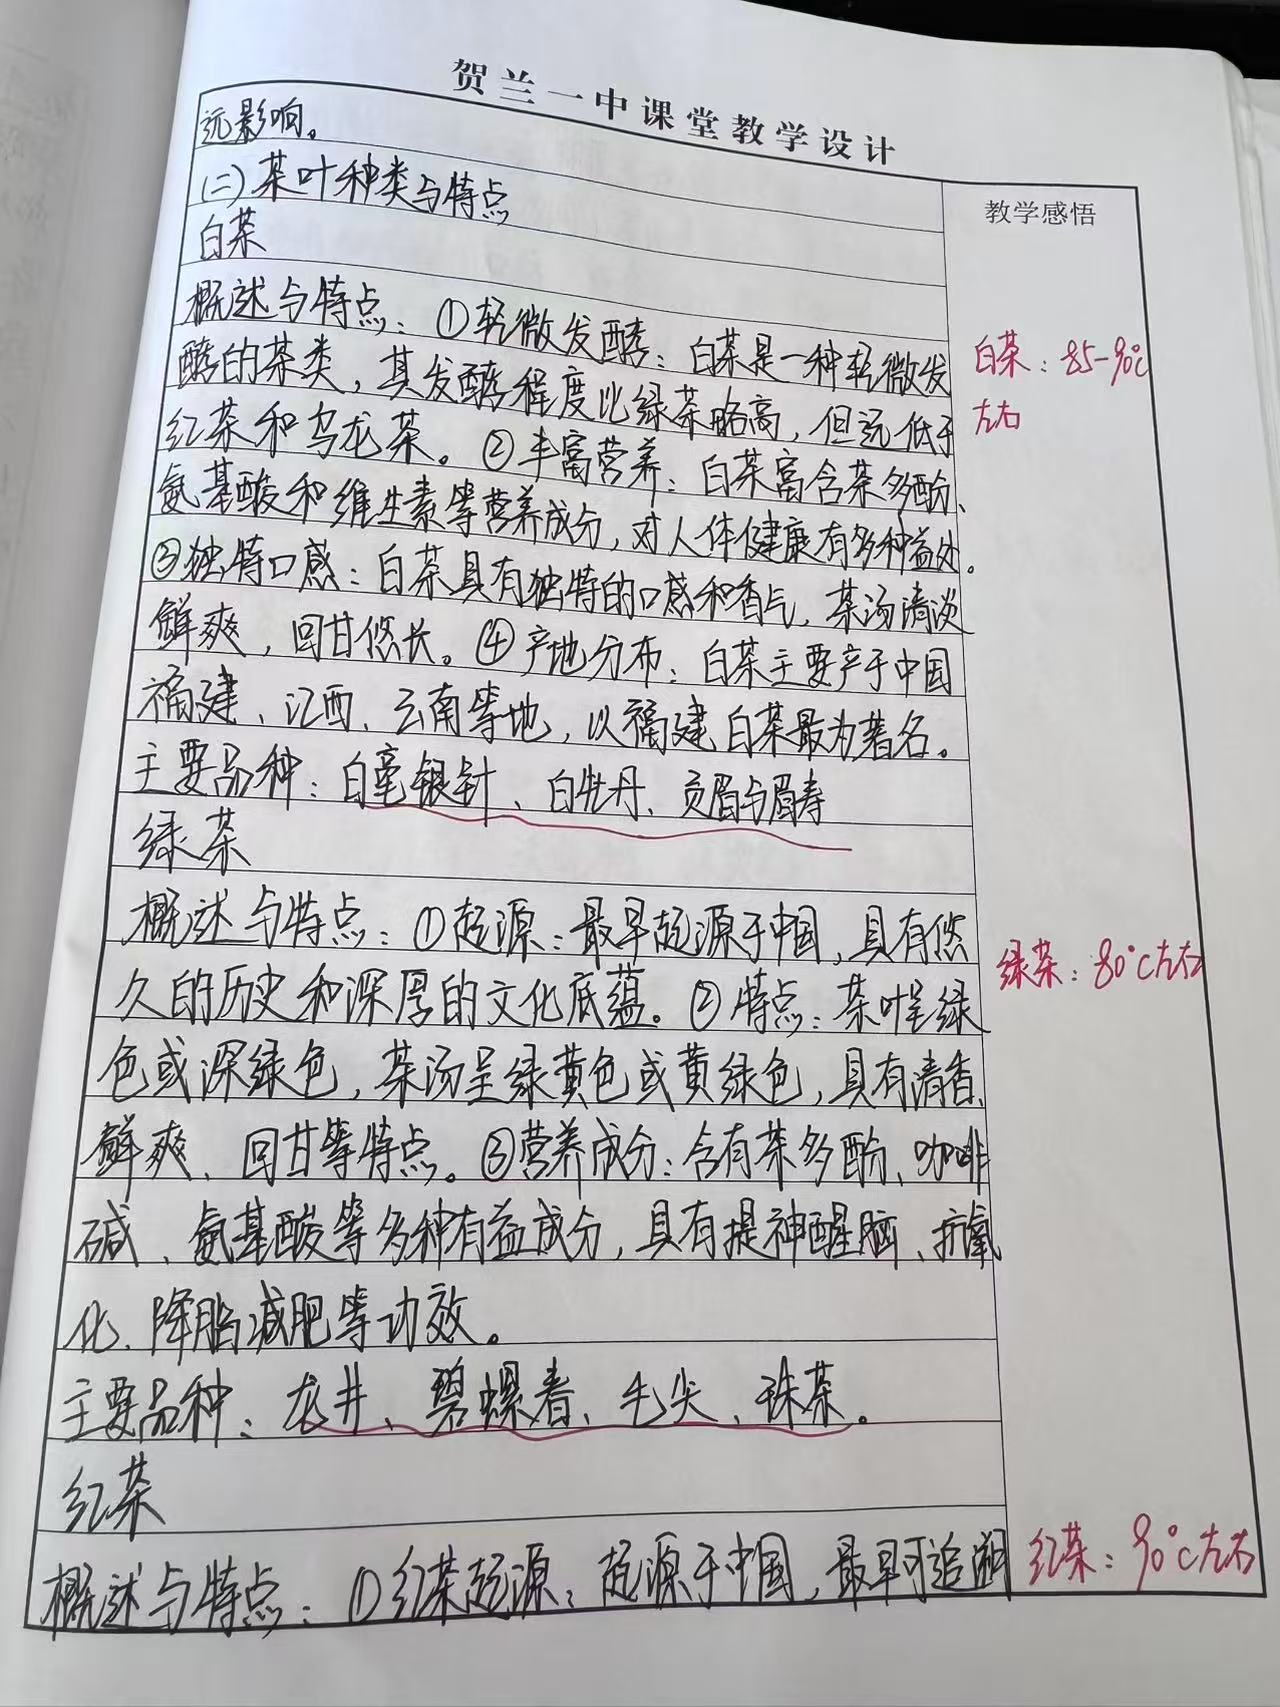 贺兰一中课堂教学设计
远影响。
(二)茶叶种类与特点
教学感悟
白茶
概述与特点：①轻微发酵：白茶是一种轻微发
酵的茶类，其发酵程度比绿茶略高，但远低于
红茶和乌龙茶。②丰富营养：白茶富含茶多酚、
氨基酸和维生素等营养成分，对人体健康有多种益处。
③独特口感：白茶具有独特的口感和香气，茶汤清淡
鲜爽，回甘悠长。④产地分布：白茶主要产于中国
福建、江西、云南等地，以福建白茶最为著名。
主要品种：白毫银针、白牡丹、贡眉与眉寿
白茶：85-90℃
左右
绿茶
概述与特点：①起源：最早起源于中国，具有悠
久的历史和深厚的文化底蕴。②特点：茶叶呈绿
色或深绿色，茶汤呈绿黄色或黄绿色，具有清香、
鲜爽、回甘等特点。③营养成分：含有茶多酚、咖啡
碱、氨基酸等多种有益成分，具有提神醒脑、抗氧
化、降脂减肥等功效。
主要品种：龙井、碧螺春、毛尖、珠茶。
绿茶：80℃左右
红茶
概述与特点：①红茶起源：起源于中国，最早可追溯
红茶：90℃左右